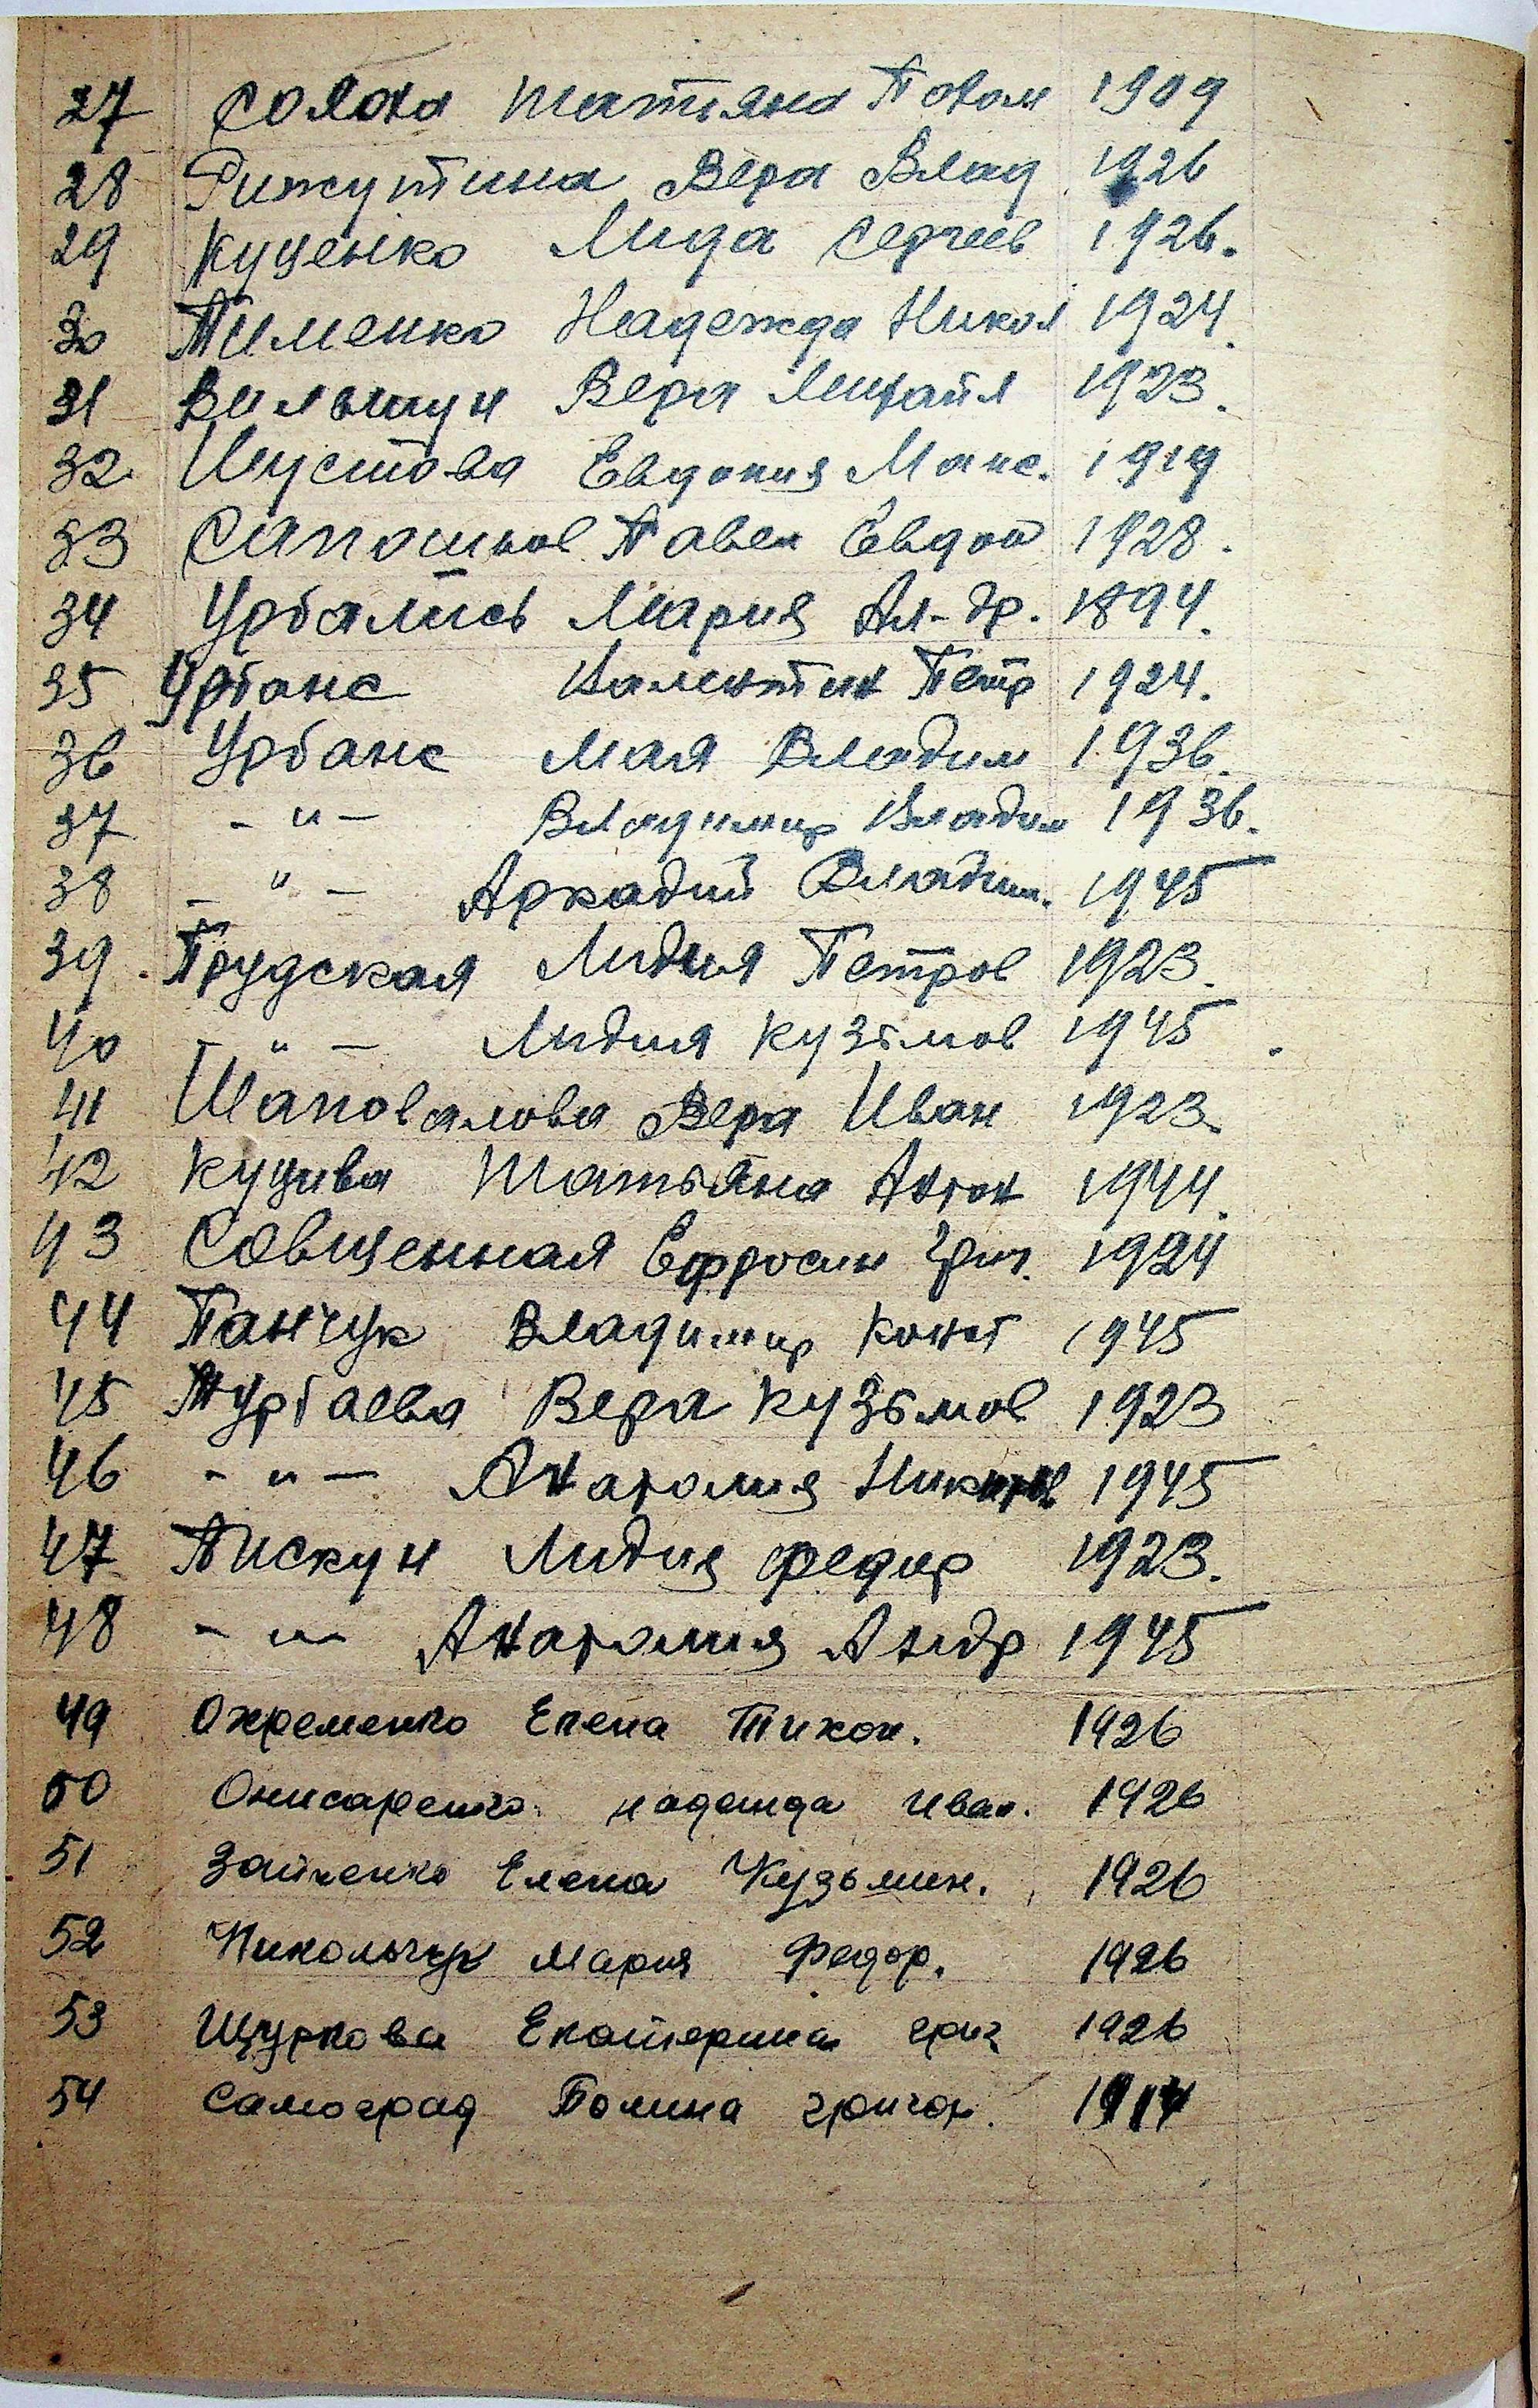 27 Солоха Татьяна Потап 1909
28 Рижутина Вера Влад 1926
29 Куценко Лида Сергеев 1926.
30 Тименко Надежда Никол 1924.
31 Вильшун Вера Михайл 1923.
32 Шустова Евдокия Макс. 1919
33 Сапошков Павел Евдок 1928.
34 Урбались Мария Ал-др. 1894.
35 Урбанс Валентин Петр 1924.
36 Урбанс Мая Владим 1936.
37 -"- Владимир Владим 1936.
38 -"- Аркадий Владим. 1945
39. Прудская Лидия Петров 1923.
40 -"- Лидия Кузьмов 1945
41 Шаповалова Вера Иван 1923.
42 Куцива Татьяна Антон 1944.
43 Совщенная Ефросин Григ. 1924
44 Панчук Владимир Конст 1945
45 Турбаева Вера Кузьмов 1923
46 -"- Анатолия Никитов 1945
47 Пискун Лидия Федор 1923.
48 -"- Анатолия Андр 1945
49 Охременко Елена Тихон. 1926
50 Онисаренко надежда Иван. 1926
51 Зайченко Елена Кузьмин. 1926
52 Никольчук Мария Федор. 1926
53 Щуркова Екатерина григ 1926
54 Самоград Полина григор.